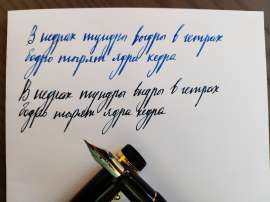 В недрах тундры выдры в гетрах
бодро тырят ядра кедра
В недрах тундры выдры в гетрах
бодро тырят ядра кедра